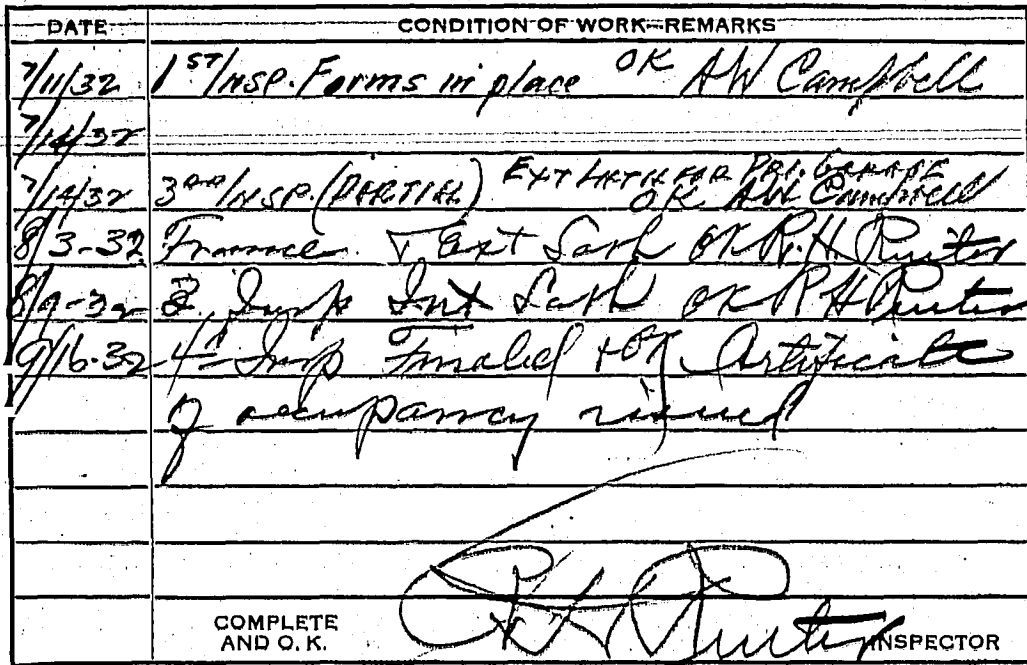 DATE CONDITION OF WORK—REMARKS
7/11/32 1ST INSP. Forms in place OK AW Campbell
7/14/32
7/14/32 3RD INSP. (PARTIAL) EXT LATH FOR PRI. GARAGE OK AW Campbell
8/3-32 Frame & Ext Lath OK R.H. Ruiter
8/9-32 3d Insp Int Lath OK R H Ruiter
9/16-32 4th Insp Finaled + OK Certificate
of occupancy issued
COMPLETE AND O. K. R H Ruiter INSPECTOR